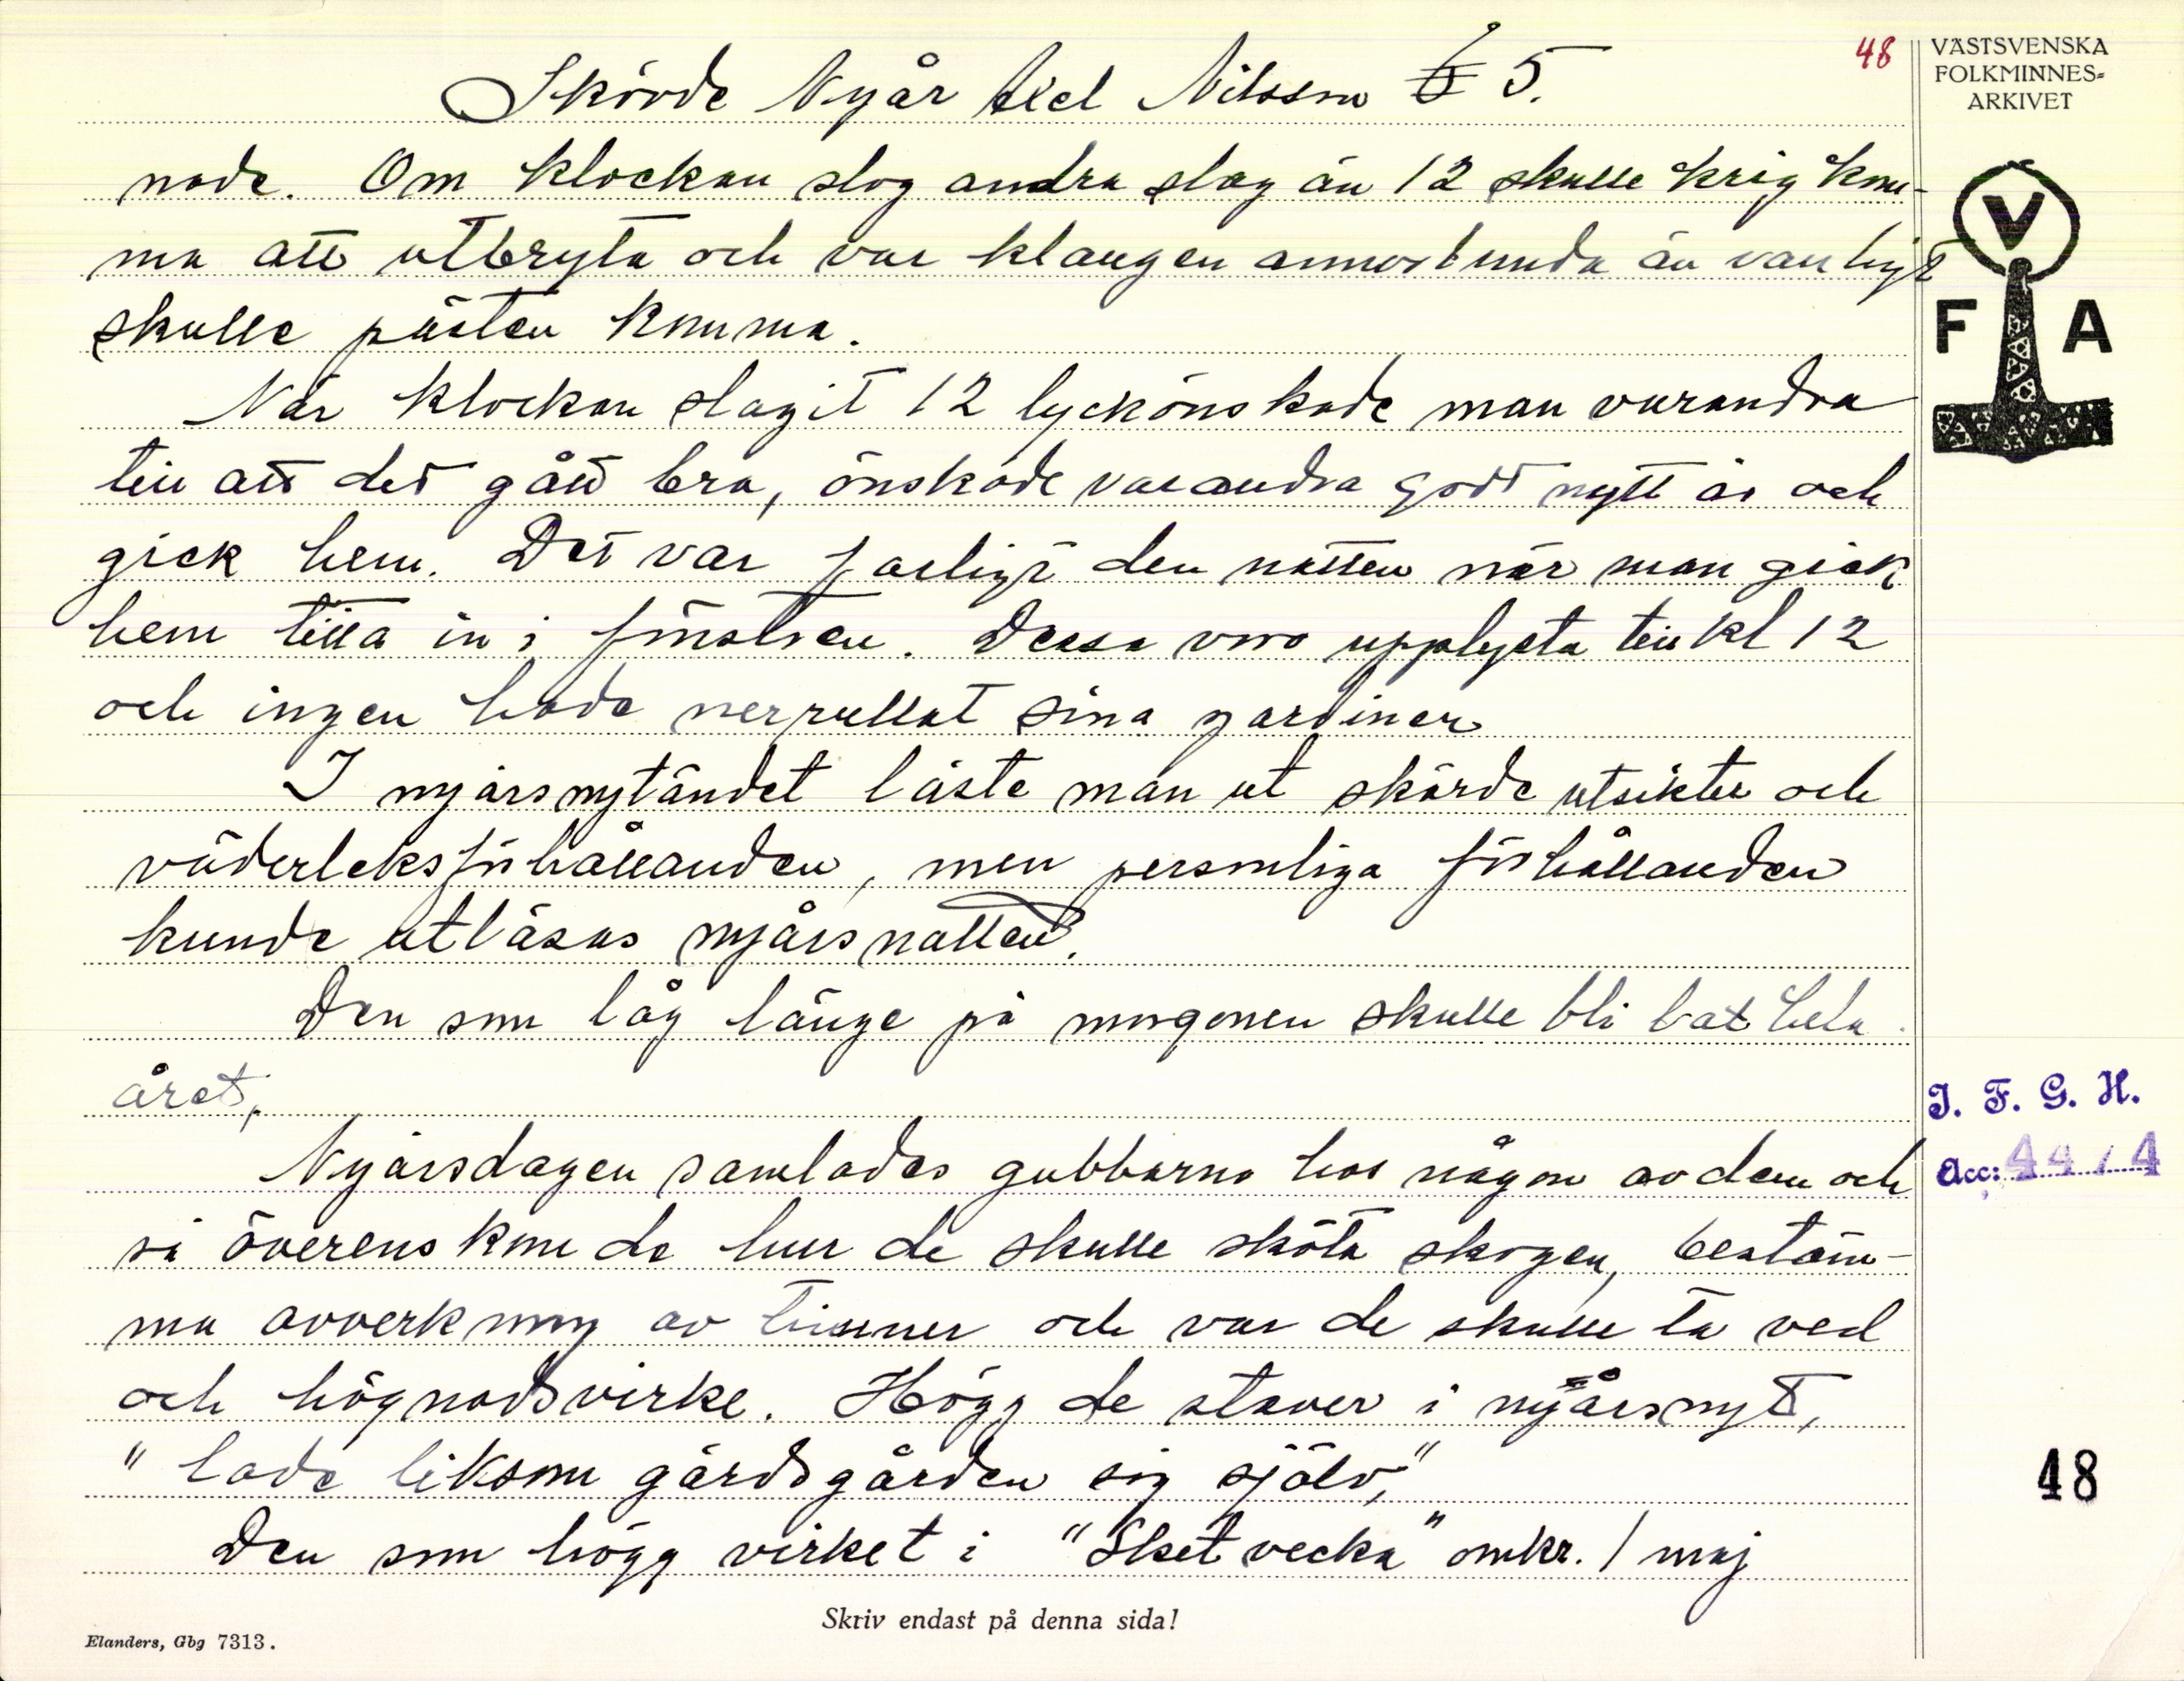 Skövde Nyår Axel Nilsson 5.
48
VÄSTSVENSKA
FOLKMINNES-
ARKIVET
nade. Om klockan slog andra slag än 12 skulle krig kom-
ma att utbryta och var klangen annorlunda än vanligt
skulle pästen komma.
När klockan slagit 12 lyckönskade man varandra
till att det gått bra, önskade varandra godt nytt år och
gick hem. Det var farligt den natten när man gick
hem titta in i fönstren. Dessa voro upplysta till kl 12
och ingen hade nerrullat sina gardiner
I nyårsnytändet läste man ut skörde utsikter och
väderleksförhållanden, men personliga förhållanden
kunde utläsas nyårsnatten.
Den som låg länge på morgonen skulle bli lat hela
året,
Nyårsdagen samlades gubbarna hos någon av dem och
så överenskom de hur de skulle sköta skogen, bestäm-
ma avverkning av timmer och var de skulle ta ved
och högnadsvirke. Högg de staver i nyårsnyt,
" lade liksom gärdsgården sig själv,"
Den som högg virket i "Sketvecka" omkr. 1 maj
V
F A
I. F. G. H.
Acc: 44/4
48
Skriv endast på denna sida!
Elanders, Gbg 7313.